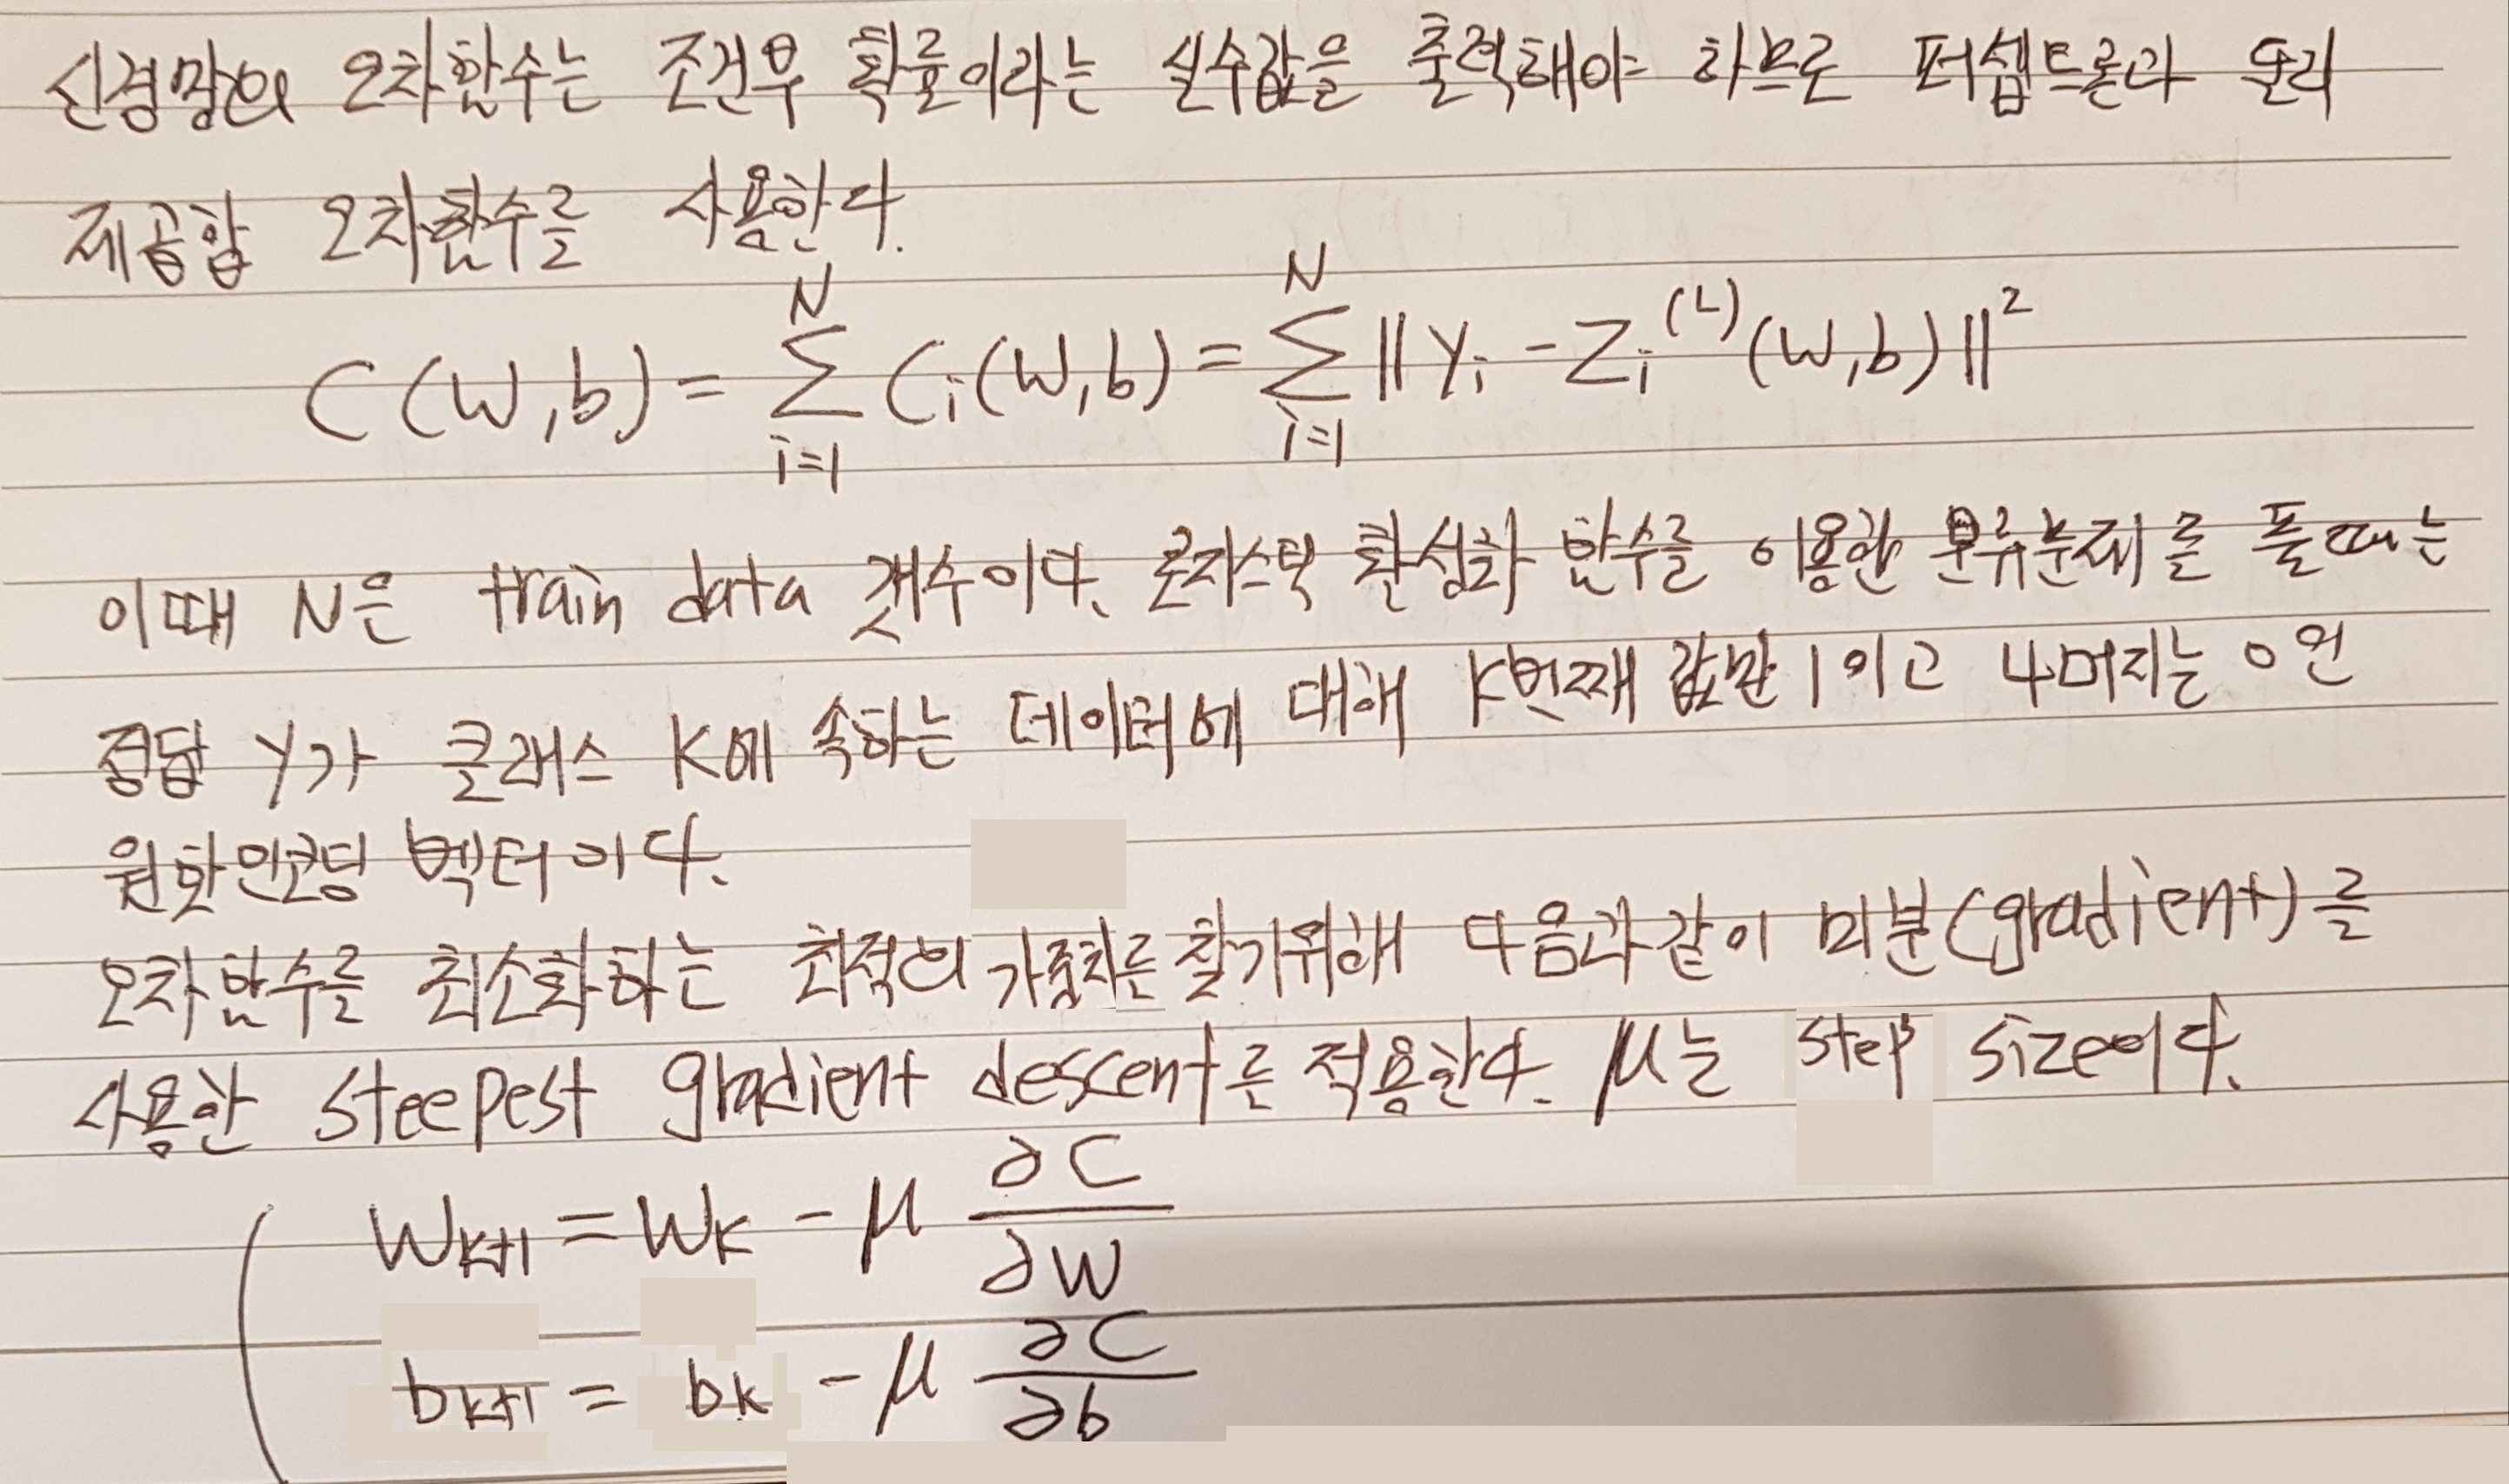 신경망의 오차함수는 조건부 확률이라는 실수값을 출력해야 하므로 퍼셉트론과 달리
제곱합 오차함수를 사용한다.
C(W,b) = \sum_{i=1}^{N} C_i(W,b) = \sum_{i=1}^{N} || y_i - Z_i^{(L)}(W,b) ||^2
이때 N은 train data 갯수이다. 로지스틱 활성화 함수를 이용한 분류문제를 풀때는
정답 y가 클래스 K에 속하는 데이터에 대해 K번째 값만 1이고 나머지는 0인
원핫인코딩 벡터이다.
오차함수를 최소화하는 최적의 가중치를 찾기위해 다음과 같이 미분(gradient)를
사용한 steepest gradient descent를 적용한다. μ는 step size이다.
W_{k+1} = W_k - μ \frac{∂C}{∂W}
b_{k+1} = b_k - μ \frac{∂C}{∂b}